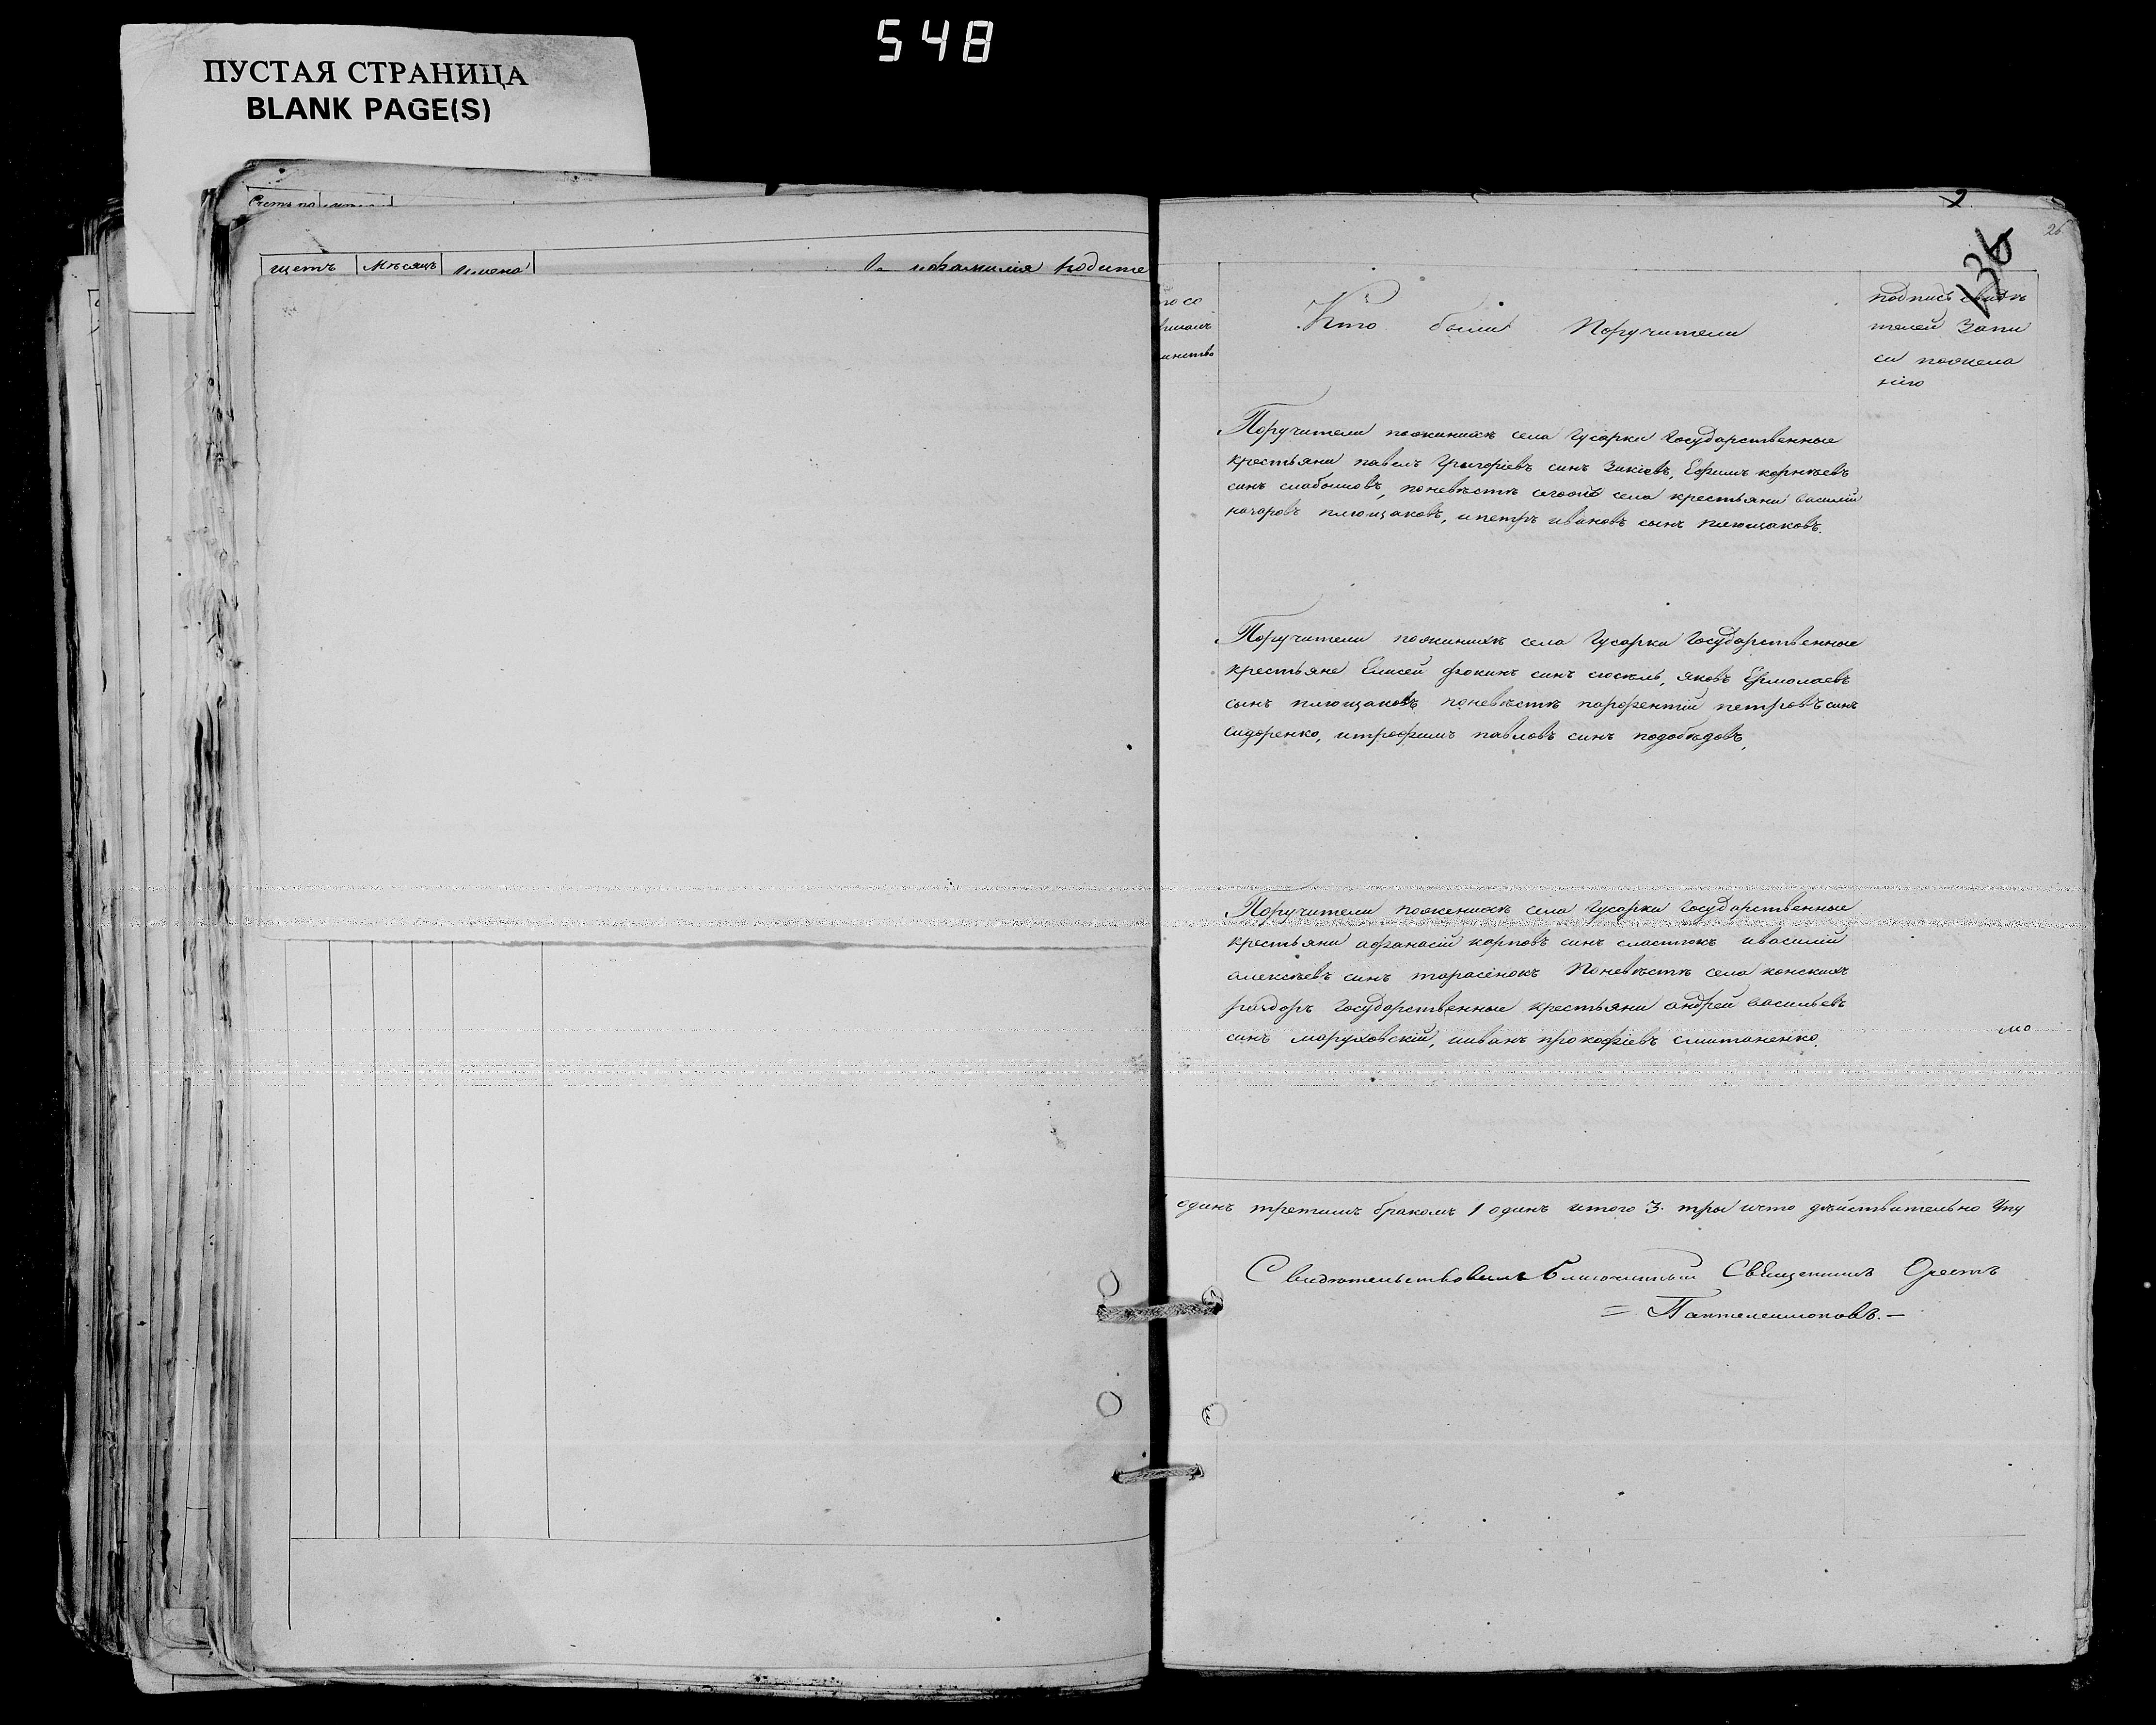 548
ПУСТАЯ СТРАНИЦА
BLANK PAGE(S)
щетъ Мѣсяцъ Имена и фамилия родите
26
136
Кто были Поручители
подпись свидѣ
телей Запи
си пожела
нию
Поручители поженихѣ села Гусарки Государственные
крестьяни павелъ Григоріевъ синъ Зикіевъ, Ефимъ корнѣевъ
синъ слабошовъ, поневѣстѣ села крестьяни василій
назаровъ плющаковъ, и петръ ивановъ сынъ плющаковъ.
Поручители поженихѣ села Гусарки Государственные
крестьяне Елисей фокинъ синъ яковъ Ермолаевъ
сынъ плющаковъ поневѣстѣ парфентій петровъ синъ
сидоренко, итрофимъ павловъ синъ подобѣдовъ,
Поручители поженихѣ села Гусарки Государственные
крестьяни афанасій карповъ синъ сластюкъ ивасилій
алексѣевъ синъ тарасенокъ Поневѣстѣ села конскихъ
раздоръ Государственные крестьяни андрей васильевъ
синъ маруховскій, ииванъ прокофіевъ
мо
одинъ третимъ бракомъ 1 одинъ итого 3. три ичто дѣйствительно
Свидѣтельствовалъ Благочинный Священникъ Орестъ
= Пантелеимоновъ. –